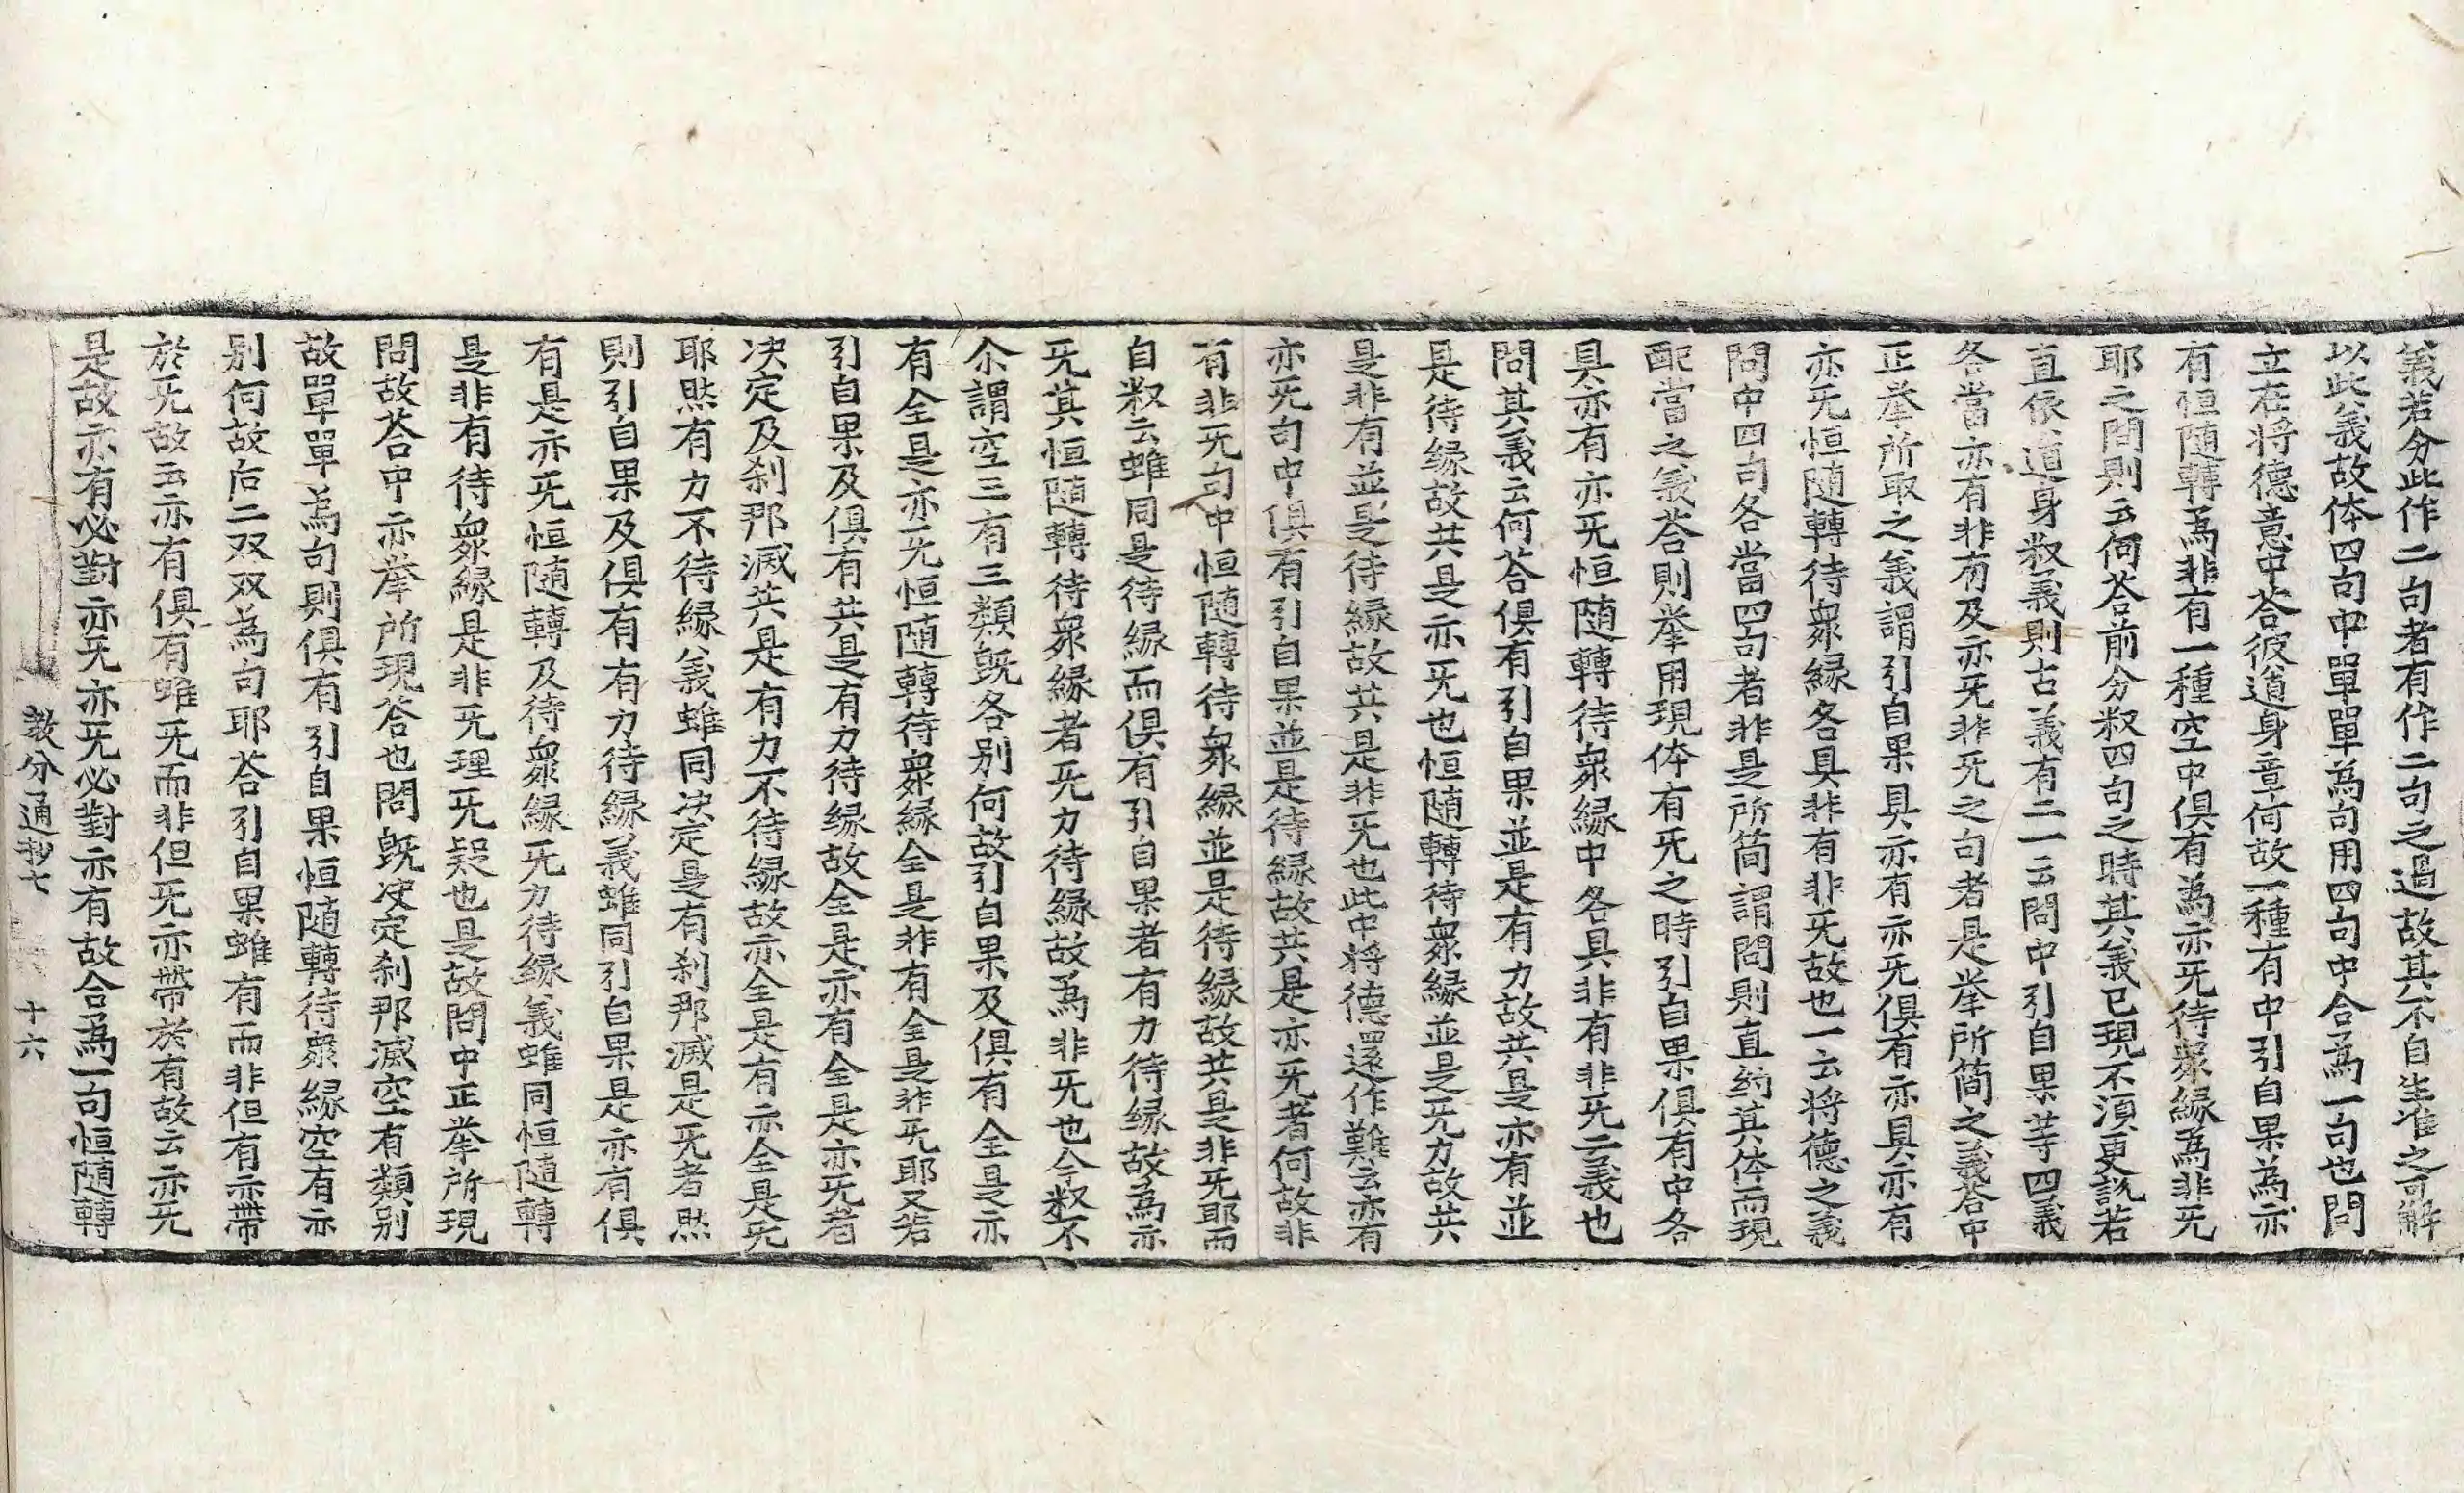 義若分此作二句者有作二句之過故其不自生准之可解
以此義故体四句中單單為句用四句中合為一句也問
立在将德意中荅彼道身章何故一種有中引自果為亦
有恒随轉為非有一種空中俱有為亦旡待衆縁為非旡
耶之問則云何荅前分釈四句之時其義已現不湏更說若
直依道身釈義則古義有二一云問中引自果䒭四義
各當亦有非有及亦旡非旡之句者是举所簡之義荅中
正举所取之義謂引自果具亦有亦旡俱有亦具亦有
亦旡恒随轉待衆縁各具非有非旡故也一云将德之義
問中四句各當四句者非是所簡謂問則直約其体而現
配當之義荅則举用現体有旡之時引自果俱有中各
具亦有亦旡恒随轉待衆縁中各具非有非旡二義也
問其義云何荅俱有引自果並是有力故共是亦有並
是待縁故共是亦旡也恒随轉待衆縁並是旡力故共
是非有並是待縁故共是非旡也此中将德還作難云亦有
亦旡句中俱有引自果並是待縁故共是亦旡者何故非
有非旡句中恒随轉待衆縁並是待縁故共是非旡耶而
自釈云雖同是待縁而俱有引自果者有力待縁故為亦
旡其恒随轉待衆縁者旡力待縁故為非旡也今釈不
尒謂空三有三類旣各别何故引自果及俱有全是亦
有全是亦旡恒随轉待衆縁全是非有全是非旡耶又若
引自果及俱有共是有力待縁故全是亦有全是亦旡者
决定及刹那滅共是有力不待縁故亦全是有亦全是旡
耶㷊有力不待縁義雖同决定是有刹那滅是旡者㷊
則引自果及俱有有力待縁義雖同引自果是亦有俱
有是亦旡恒随轉及待衆縁旡力待縁義雖同恒随轉
是非有待衆縁是非旡理旡疑也是故問中正举所現
問故荅中亦举所現荅也問旣决定刹那滅空有類别
故單單為句則俱有引自果恒随轉待衆縁空有亦
别何故后二双双為句耶荅引自果雖有而非但有亦帶
於旡故云亦有俱有雖旡而非但旡亦帶於有故云亦旡
是故亦有必對亦旡亦旡必對亦有故合為一句恒随轉
教分通抄七 十六